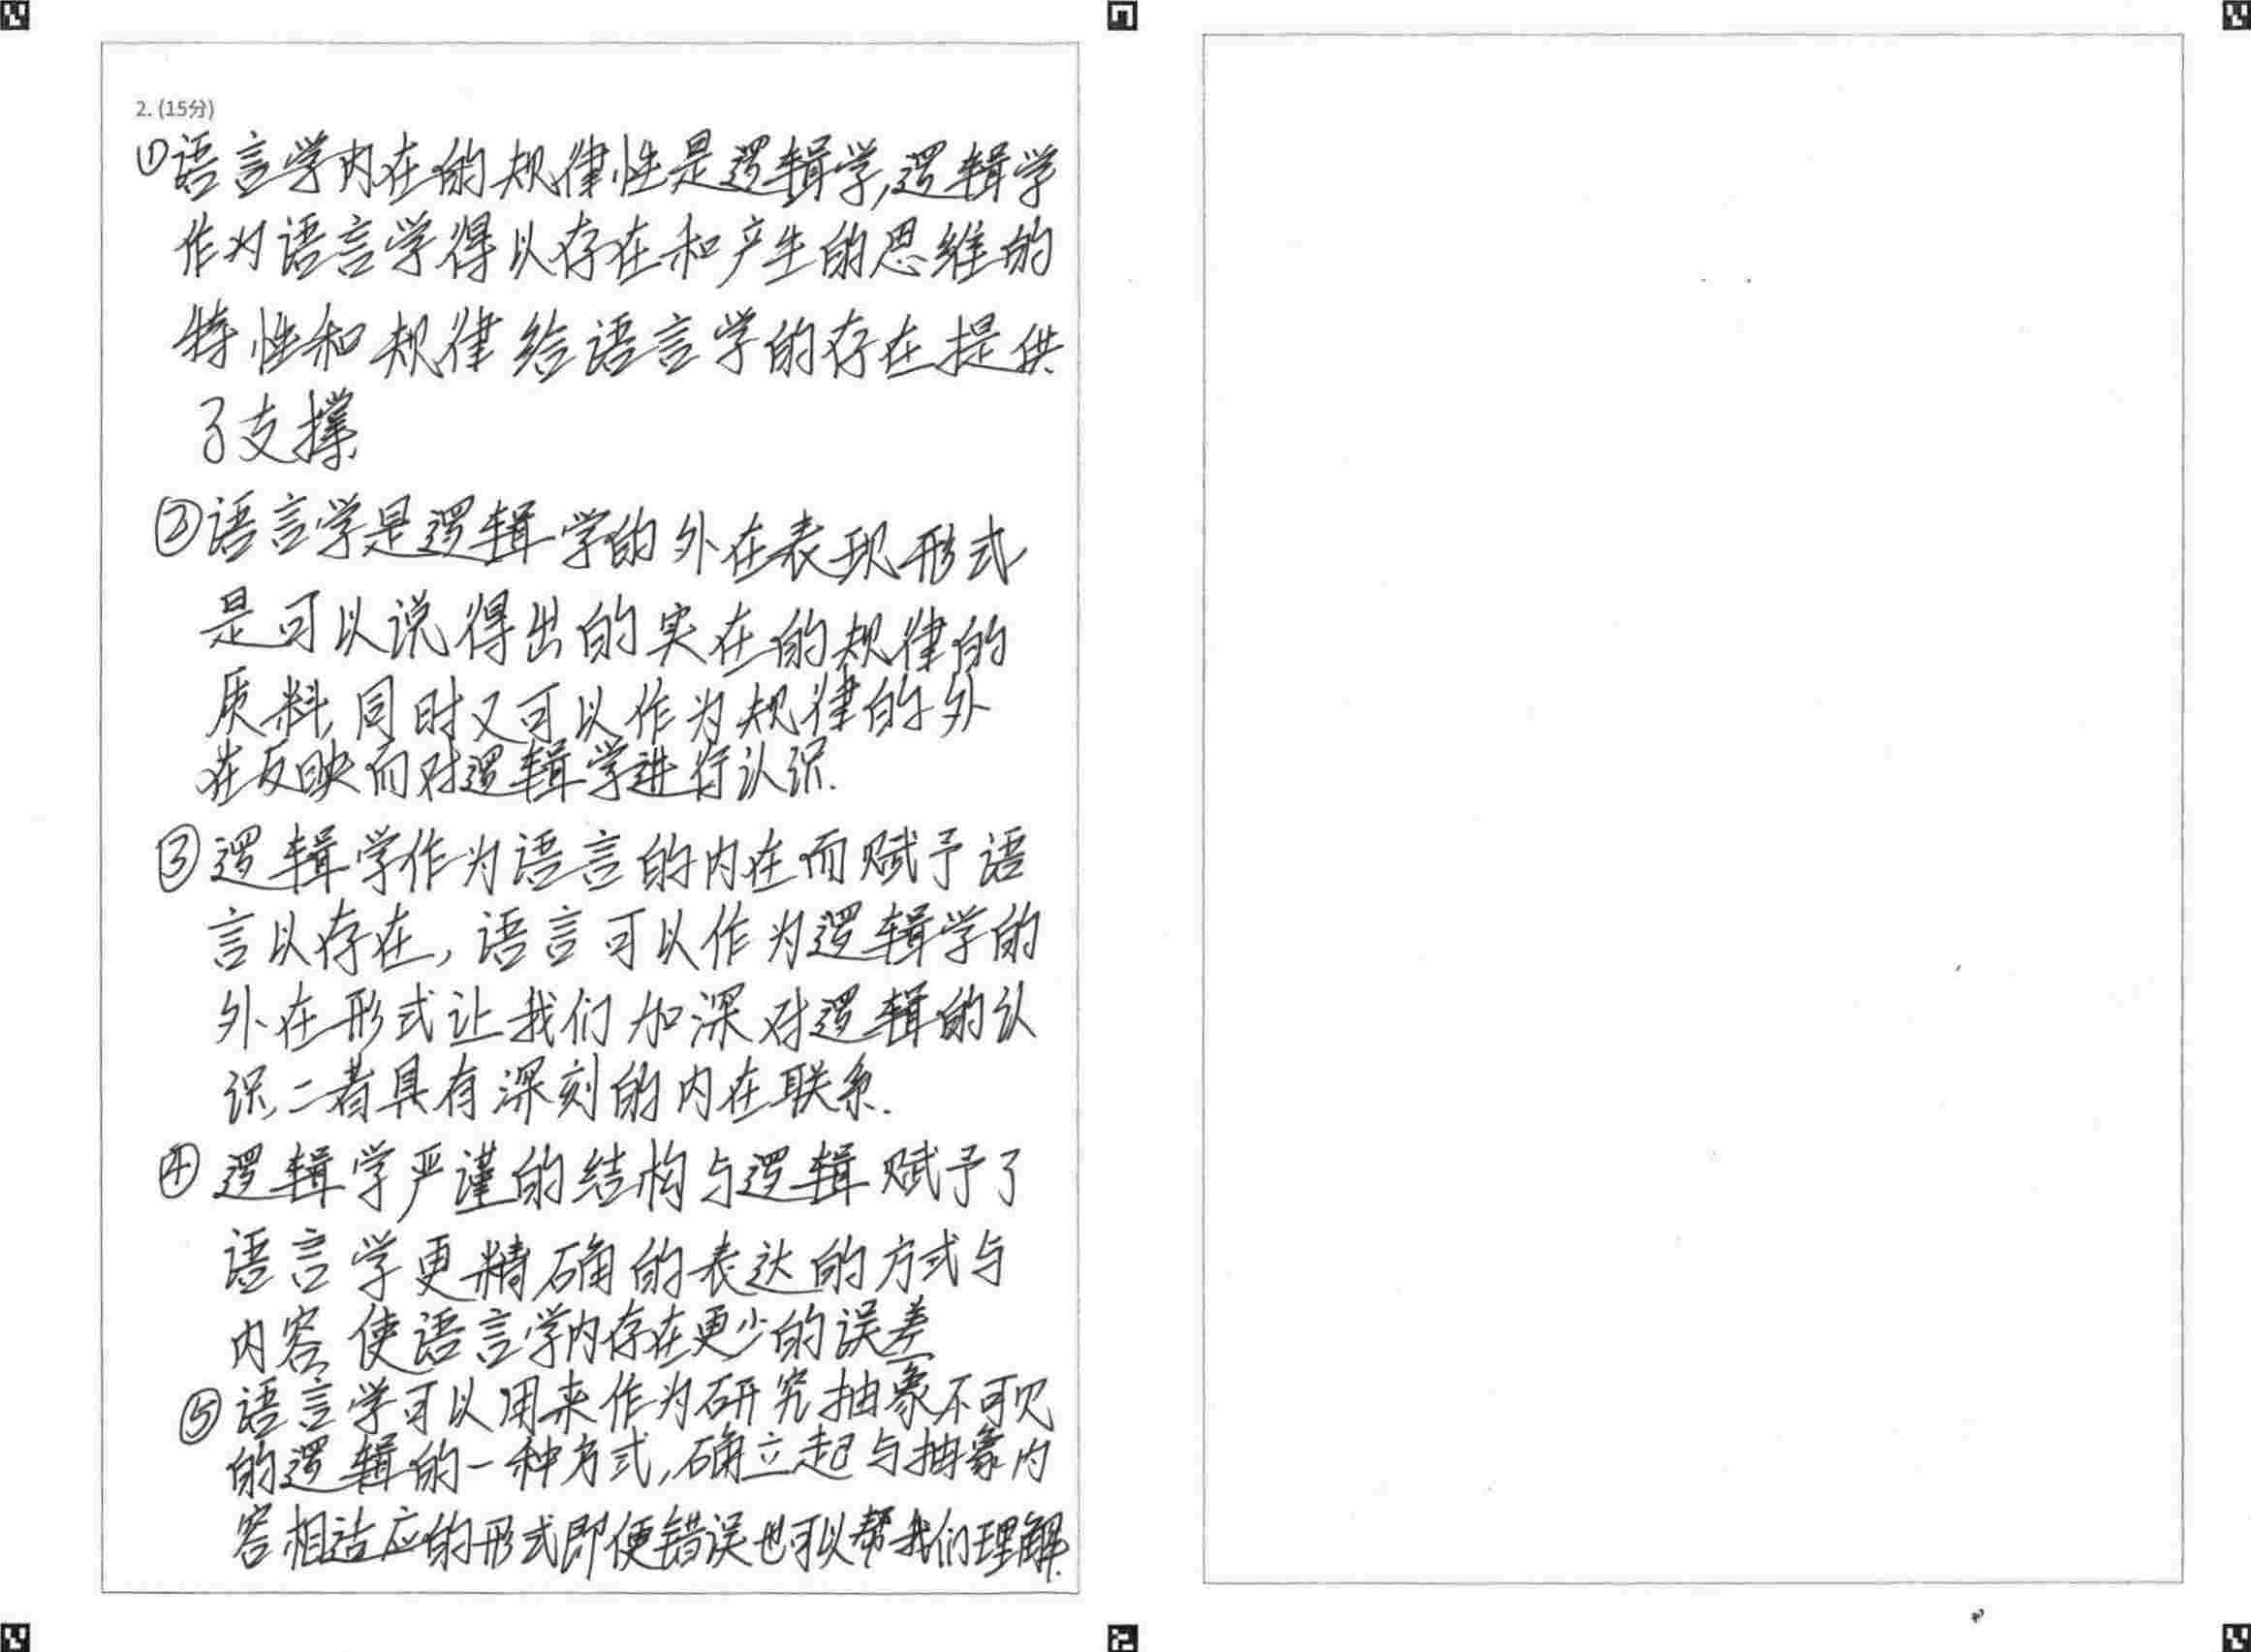 2. (15分)
①语言学内在的规律性是逻辑学,逻辑学
作为语言学得以存在和产生的思维的
特性和规律给语言学的存在提供
了支撑.
②语言学是逻辑学的外在表现形式
是可以说得出的实在的规律的
质料,同时又可以作为规律的外
在反映而对逻辑学进行认识.
③逻辑学作为语言的内在而赋予语
言以存在,语言可以作为逻辑学的
外在形式让我们加深对逻辑的认
识,二者具有深刻的内在联系.
④逻辑学严谨的结构与逻辑赋予了
语言学更精确的表达的方式与
内容,使语言学内存在更少的误差
⑤语言学可以用来作为研究抽象不可见
的逻辑的一种方式,确立起与抽象内
容相适应的形式即便错误也可以帮我们理解.